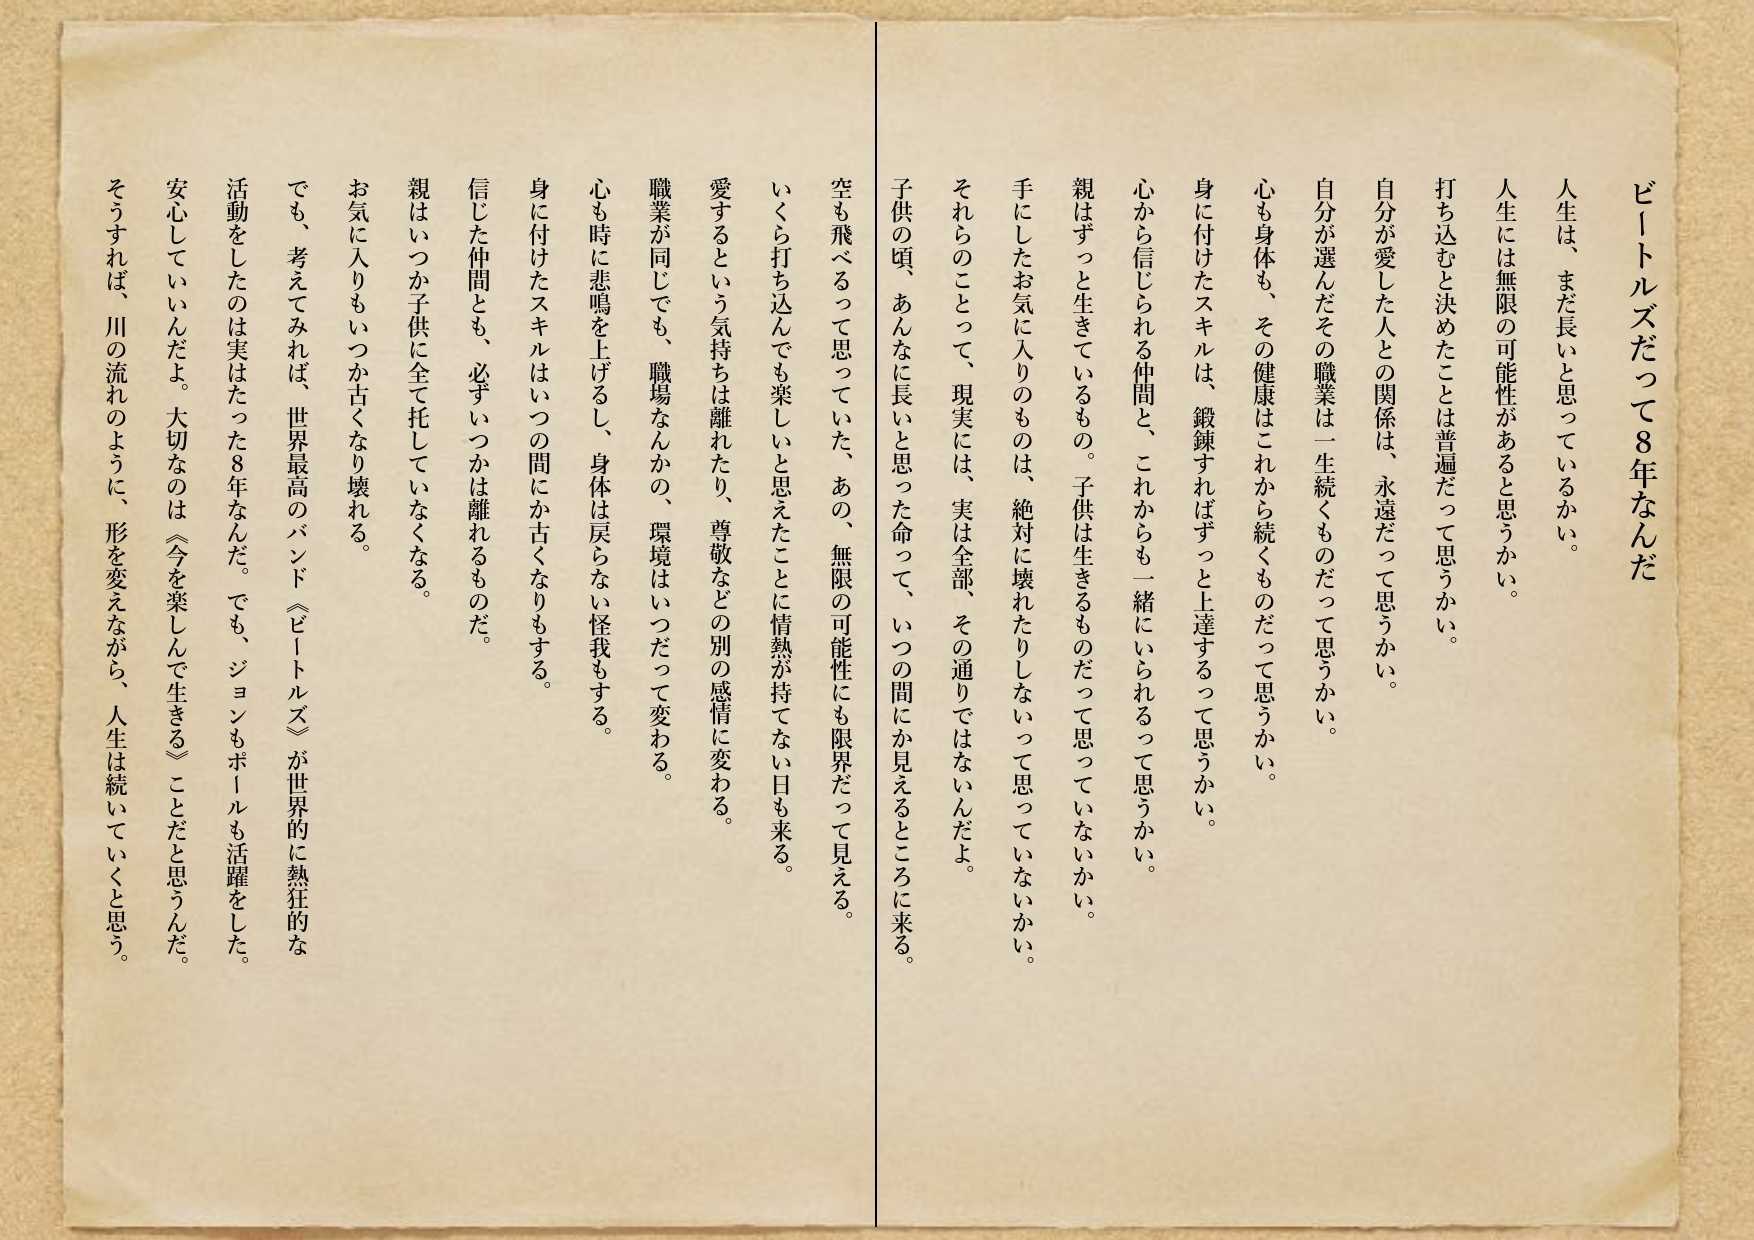 ビートルズだって８年なんだ
人生は、まだ長いと思っているかい。
人生には無限の可能性があると思うかい。
打ち込むと決めたことは普遍だって思うかい。
自分が愛した人との関係は、永遠だって思うかい。
自分が選んだその職業は一生続くものだって思うかい。
心も身体も、その健康はこれから続くものだって思うかい。
身に付けたスキルは、鍛錬すればずっと上達するって思うかい。
心から信じられる仲間と、これからも一緒にいられるって思うかい。
親はずっと生きているもの。子供は生きるものだって思っていないかい。
手にしたお気に入りのものは、絶対に壊れたりしないって思っていないかい。
それらのことって、現実には、実は全部、その通りではないんだよ。
子供の頃、あんなに長いと思った命って、いつの間にか見えるところに来る。
空も飛べるって思っていた、あの、無限の可能性にも限界だって見える。
いくら打ち込んでも楽しいと思えたことに情熱が持てない日も来る。
愛するという気持ちは離れたり、尊敬などの別の感情に変わる。
職業が同じでも、職場なんかの、環境はいつだって変わる。
心も時に悲鳴を上げるし、身体は戻らない怪我もする。
身に付けたスキルはいつの間にか古くなりもする。
信じた仲間とも、必ずいつかは離れるものだ。
親はいつか子供に全て托していなくなる。
お気に入りもいつか古くなり壊れる。
でも、考えてみれば、世界最高のバンド《ビートルズ》が世界的に熱狂的な
活動をしたのは実はたった８年なんだ。でも、ジョンもポールも活躍をした。
安心していいんだよ。大切なのは《今を楽しんで生きる》ことだと思うんだ。
そうすれば、川の流れのように、形を変えながら、人生は続いていくと思う。